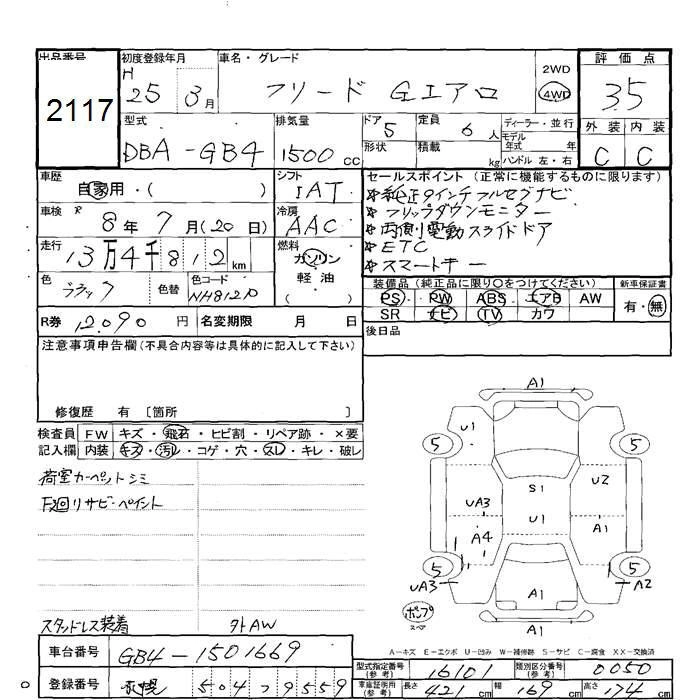 出品番号
2117
初度登録年月
H 25 3月
車名・グレード
フリード Gエアロ
2WD
4WD
評価点
3.5
外装 内装
C C
型式
DBA-GB4
排気量
1500 cc
ドア 5
形状
定員 6人
積載 kg
ディーラー・並行
モデル年式 年式
ハンドル 左・右
車歴
自家用・( )
シフト
IAT
車検 R 8年7月(20日)
冷房
AAC
走行 13万4千812km
燃料
ガソリン
軽油
( )
色 ブラック
色替
色コード
NH812P
R券 12,090円
名変期限 月 日
セールスポイント (正常に機能するものに限ります)
*純正9インチフルセグナビ
*フリップダウンモニター
*両側電動スライドドア
*ETC
*スマートキー
装備品(純正品に限り○をつけてください)
PS PW ABS エアB AW
SR ナビ TV カワ
新車保証書
有・無
後日品
注意事項申告欄(不具合内容等は具体的に記入して下さい)
修復歴 有 〔箇所 〕
検査員記入欄
FW キズ・飛石・ヒビ割・リペア跡・×要
内装 キズ・汚れ・コゲ・穴・スレ・キレ・破レ
荷室カーペットシミ
下回リサビ・ペイント
スタッドレス装着
外AW
A1
U1
5
5
S1
U2
UA3
U1
A1
A4
5
5
UA3
A2
A1
ポンプ
スペア
A1
A-キズ E-エクボ U-凹み W-補修跡 S-サビ C-腐食 XX-交換済
車台番号 GB4-1501669
登録番号 札幌 504 , 9559
型式指定番号(参考) 16101
類別区分番号(参考) 0050
車庫証明用(参考) 長さ 421cm 幅 169cm 高さ 174cm